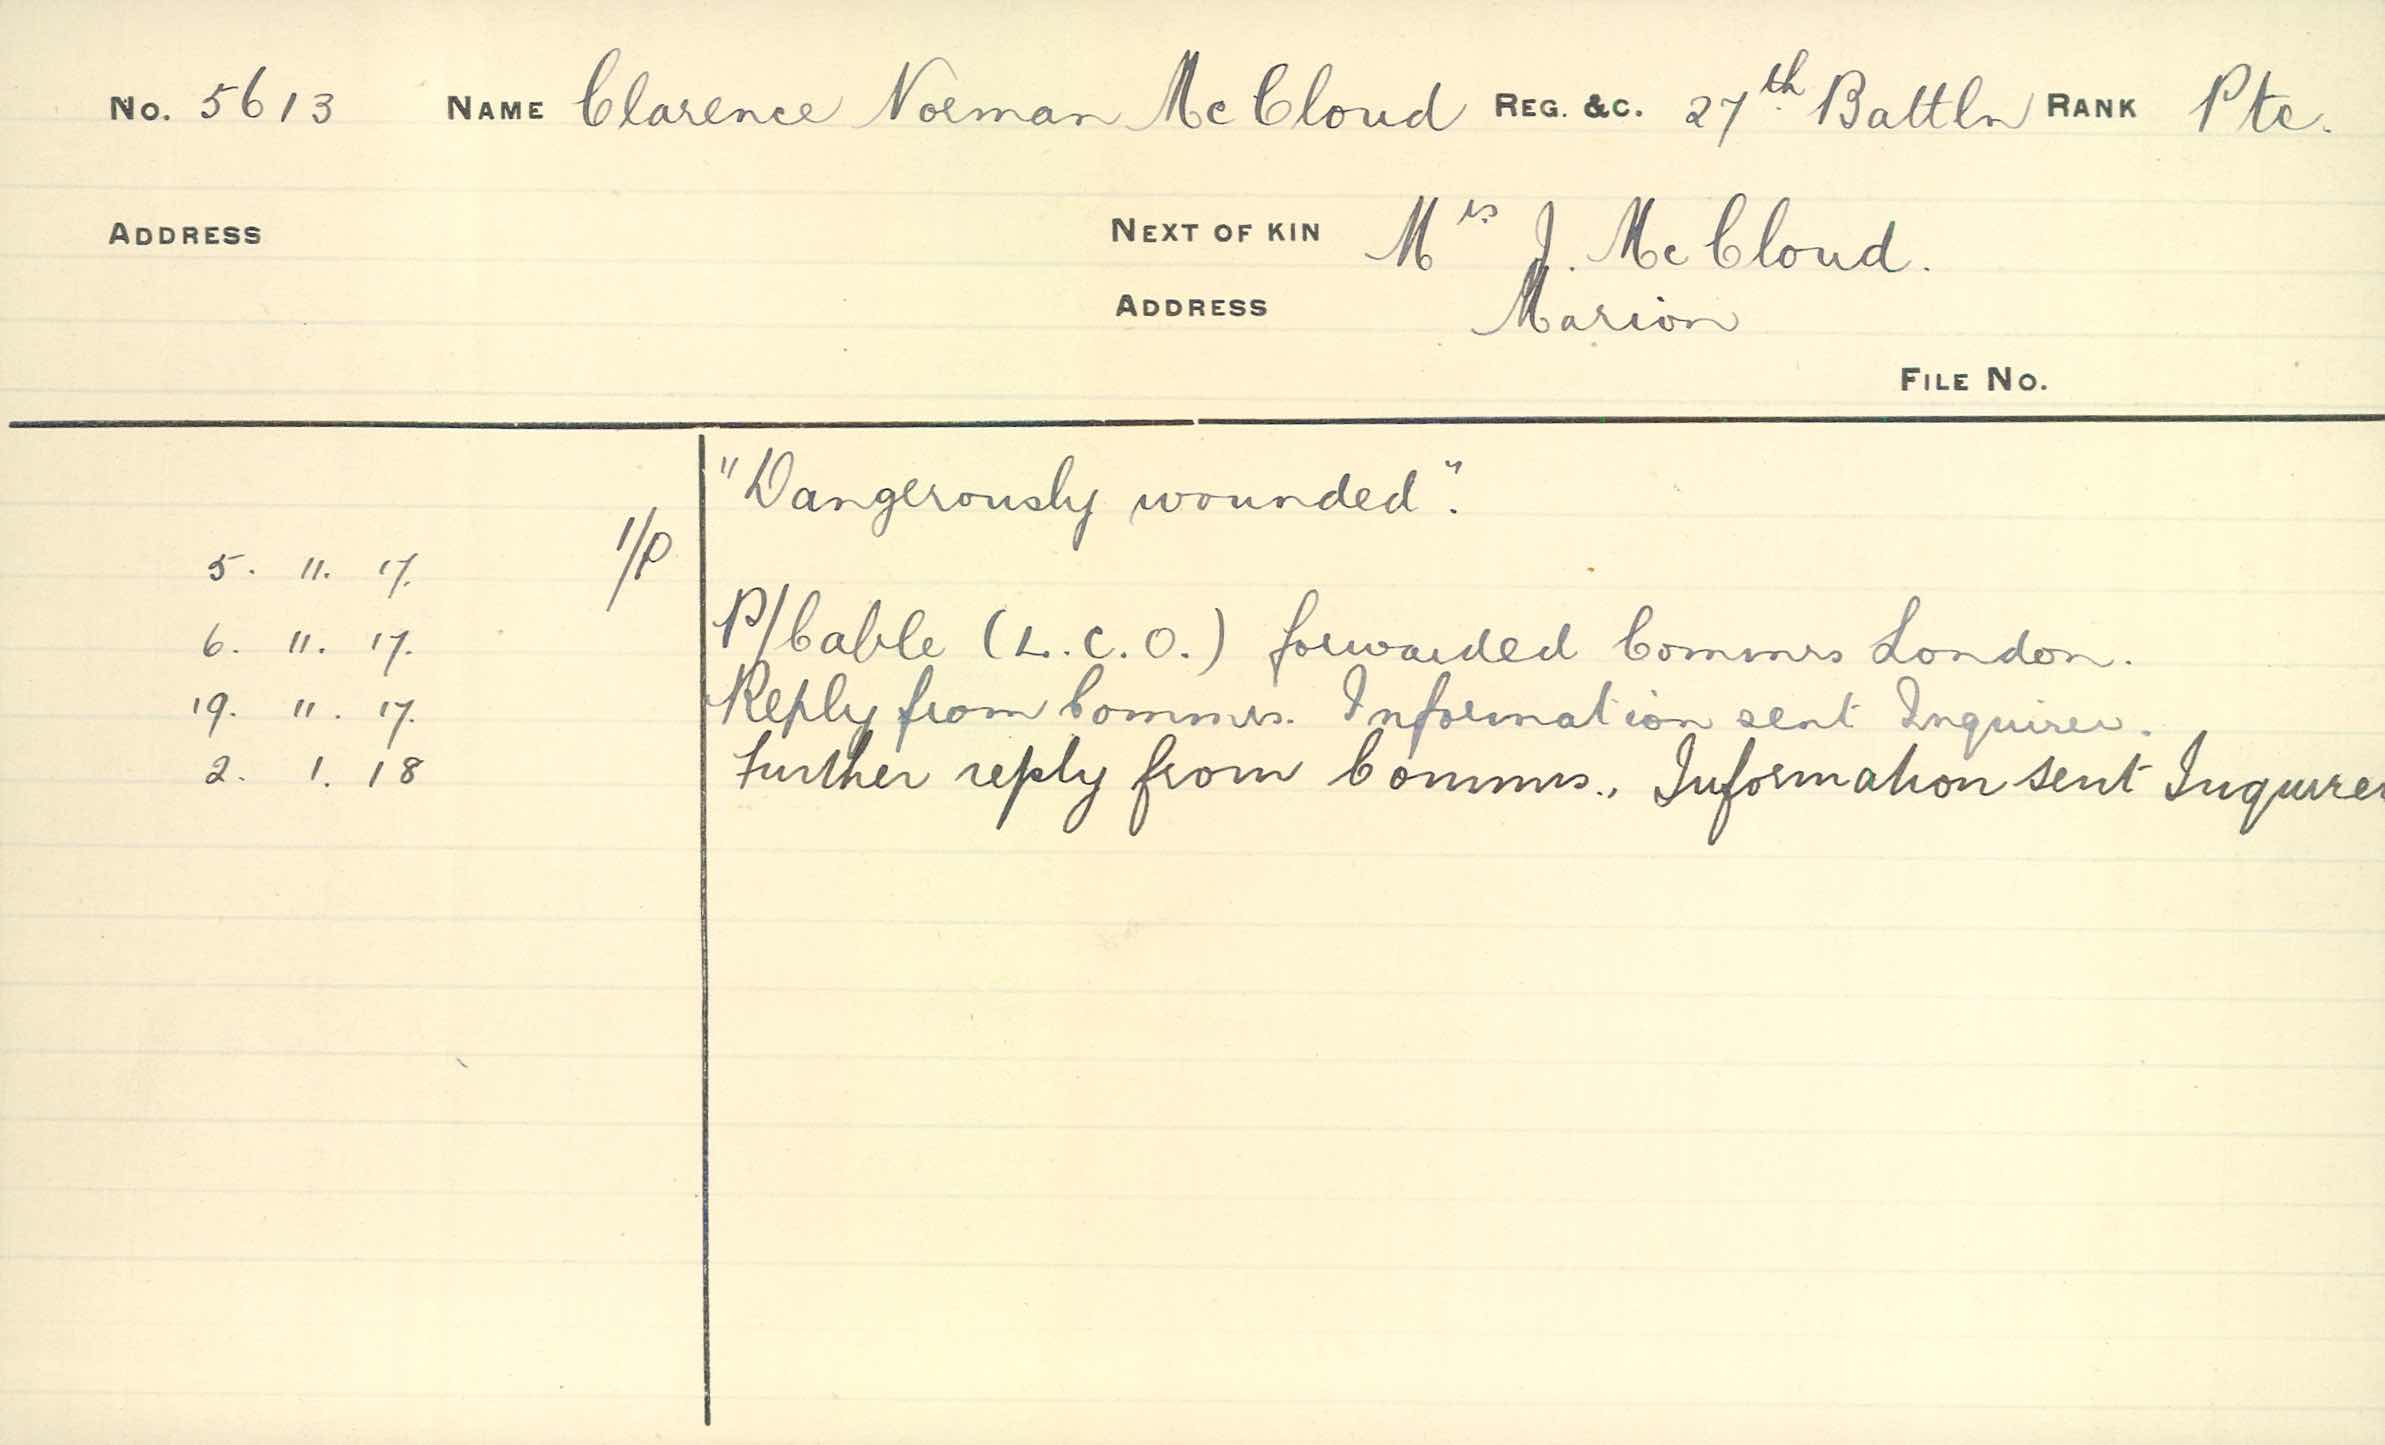 No. 5613 NAME Clarence Norman McCloud REG. &C. 27th Battln RANK Pte.
ADDRESS NEXT OF KIN Mrs J. McCloud.
ADDRESS Marion
FILE No.
"Dangerously wounded".
5. 11. 17. 1/P
6. 11. 17. P/Cable (L.C.O.) forwarded Commrs London.
19. 11. 17. Reply from Commrs. Information sent Inquirer.
2. 1. 18 Further reply from Commrs., Information sent Inquirer